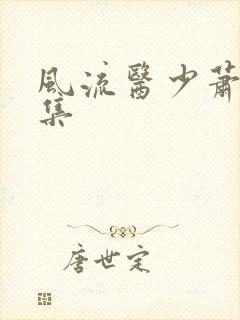 風流醫少蕭
集
唐世定